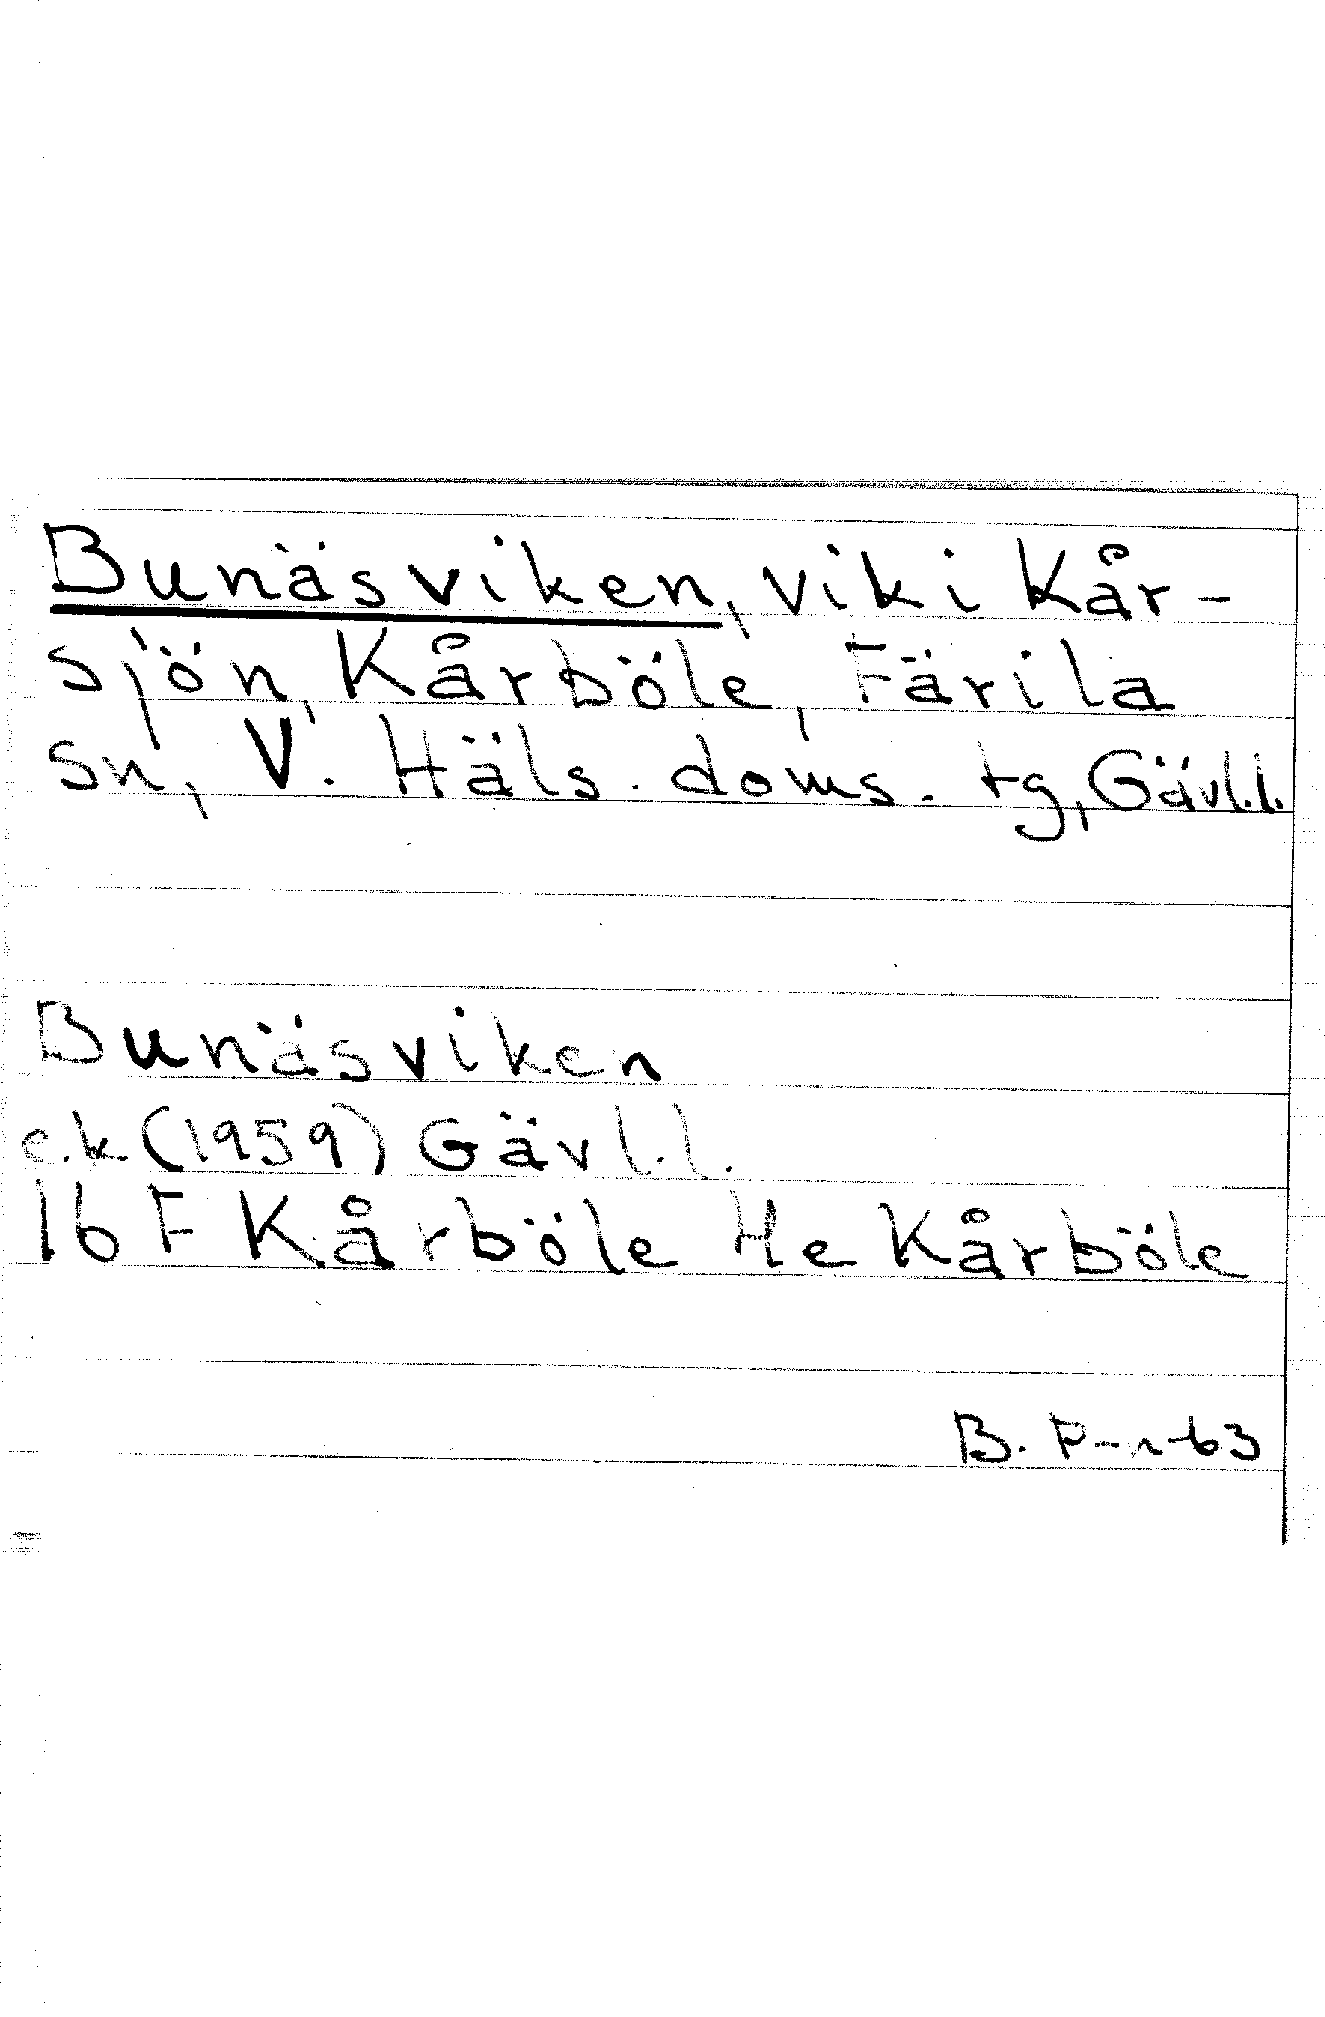 Bunäsviken, vik i Kår-
sjön, Kårböle, Färila
sn, V. Häls. doms. tg, Gävl.l.
Bunäsviken
e.k. (1959) Gävl.l.
16 F Kårböle He Kårböle
B. P-n 63